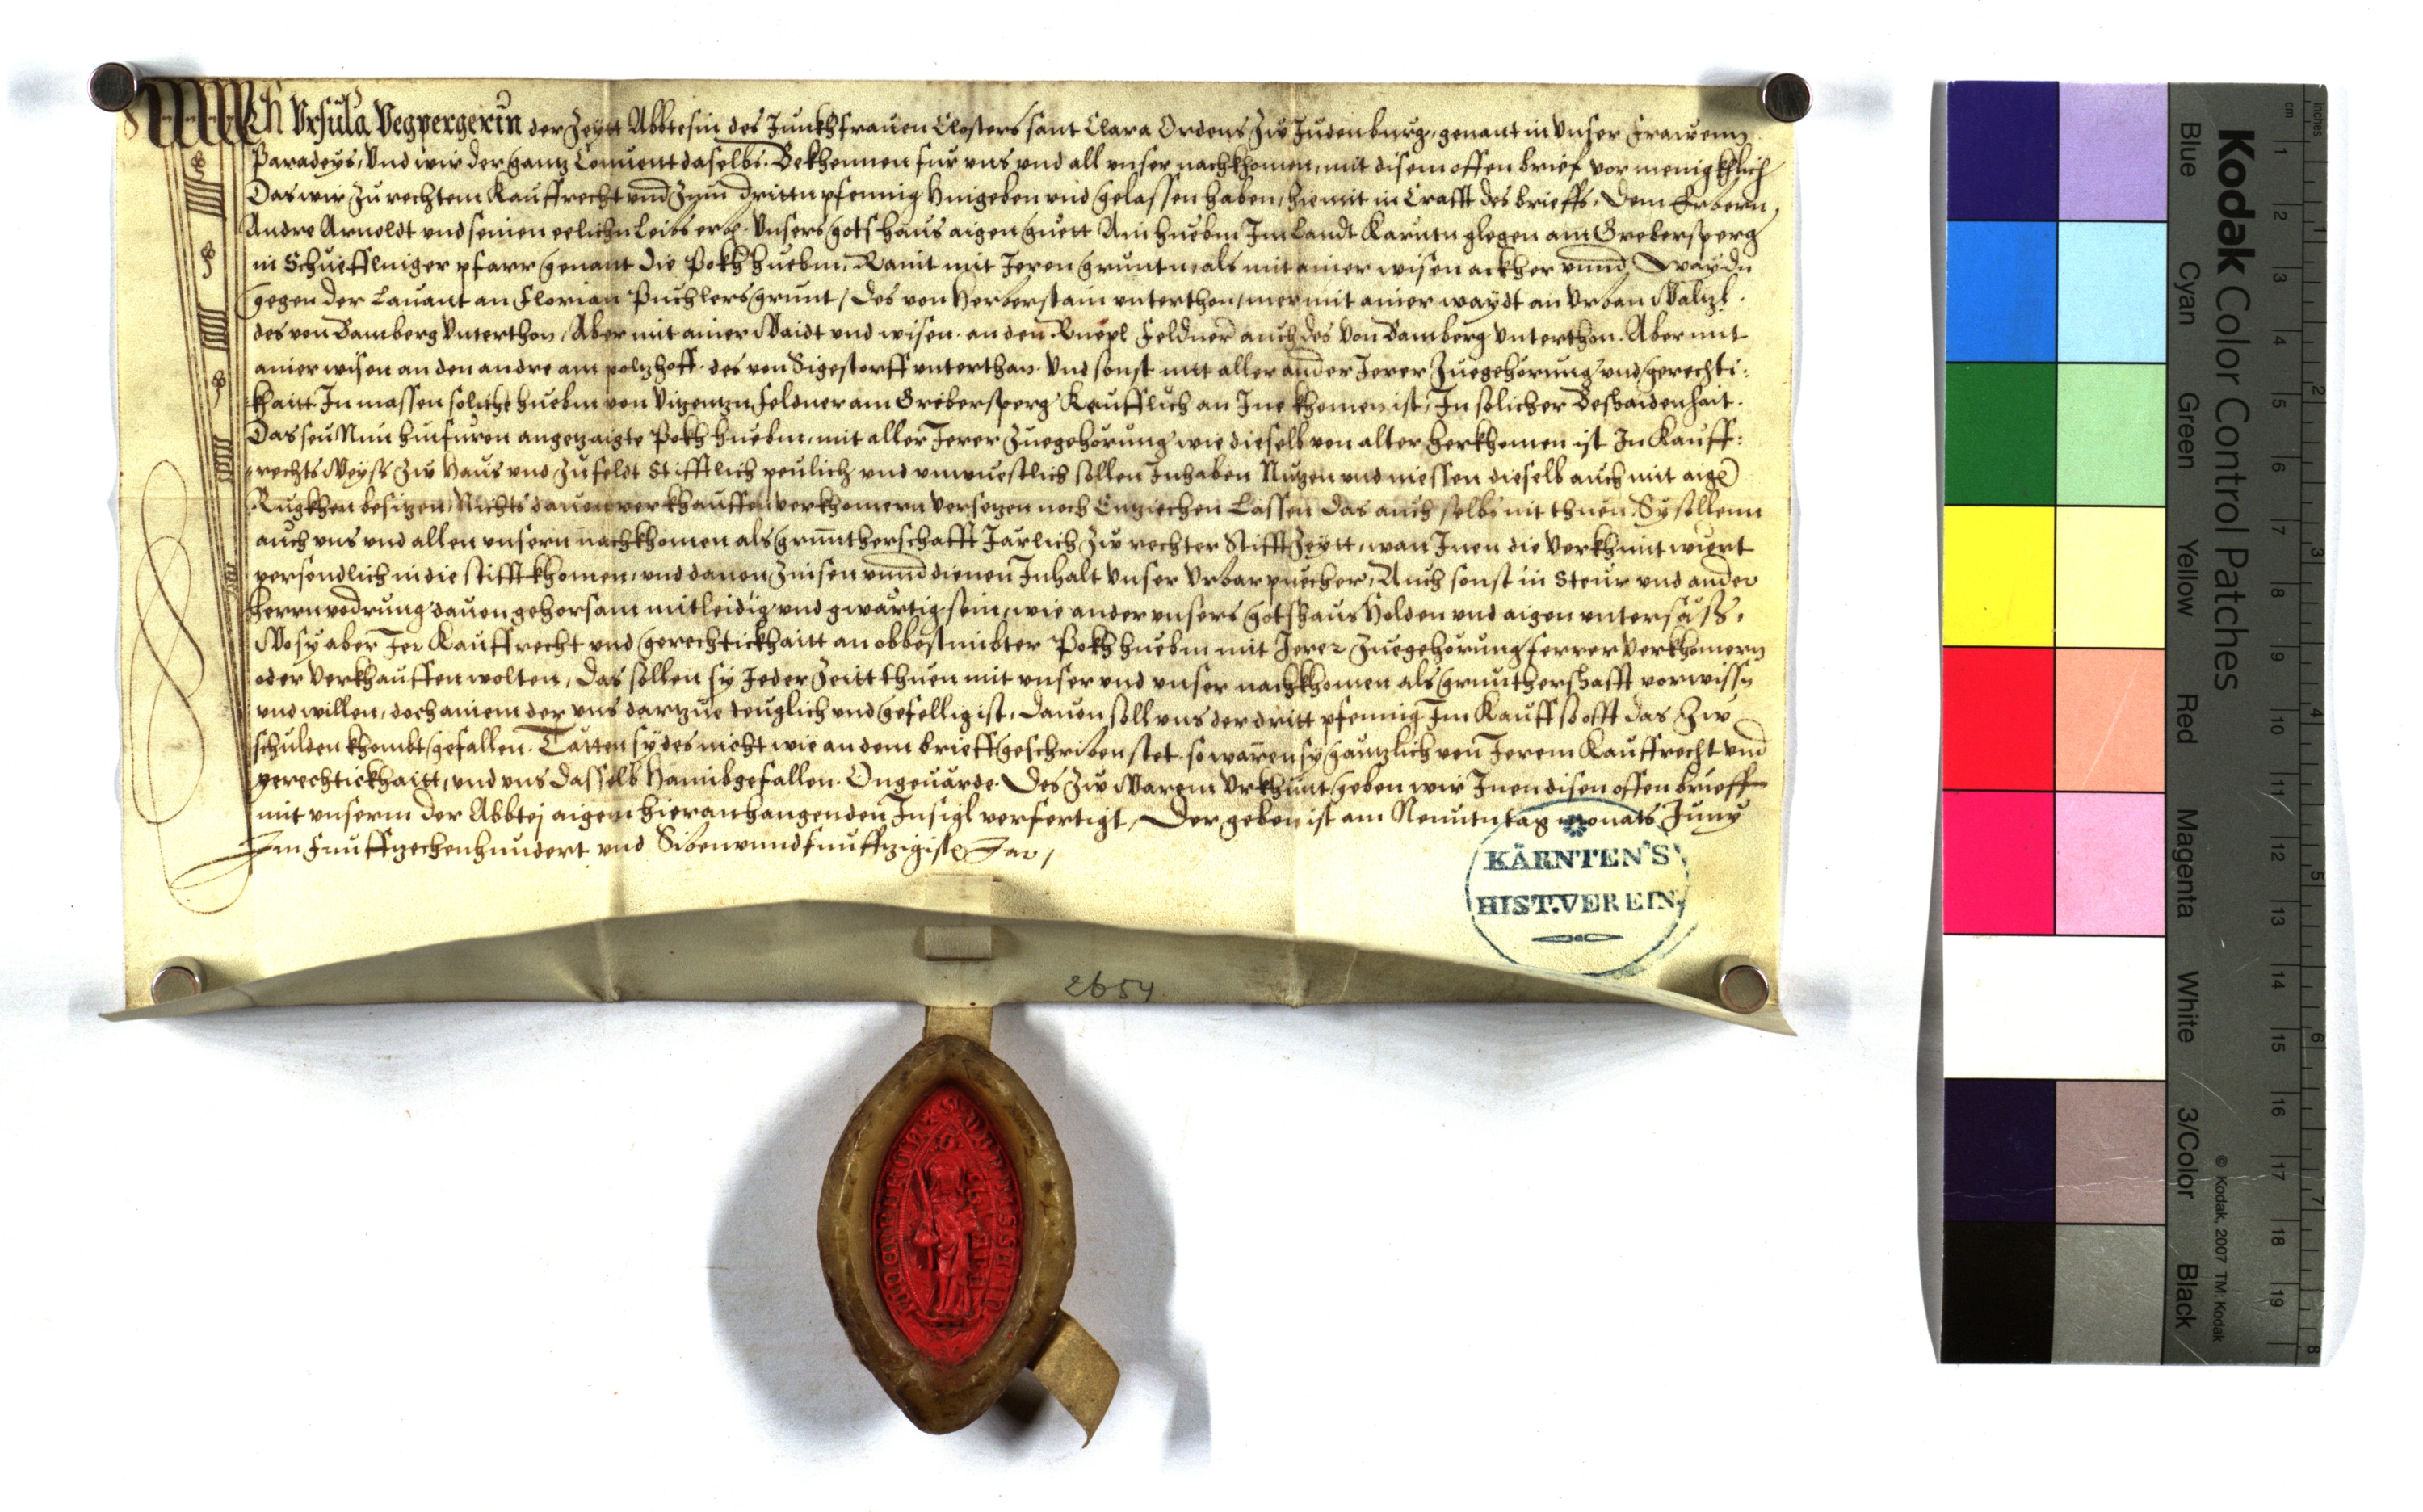 Ich Ursula Vegpergerin der Zeytt Abbtesin des Junkhfrauen Closters sant Clara Ordens zw Judenburg, genant in unser Frawenn
Paradeys, Und wir der gantz Convent daselbs. Bekhennen fur uns und all unser nachkhomen, mit disem offen brief vor menigkhlich
Das wir zu rechtem Kauffrecht und zum dritten pfennig hingeben und gelassen haben, hiemit in Crafft des brieffs, Dem Erbern,
Andre Arnoldt und seinen eelichn Leibs erb. Unsers gotshaus aigen guett Ain huebm Im Landt Karntn glegen am Grebersperg
in Schiefflniger pfarr genant die Pokhhuebm, Rainit mit Jeren gruntn als mit ainer wisen ackher unnd Waydn
gegen der Lavant an Florian Puchlers grunt, des von Herberstain unterthon, mer mit ainer waydt an Urban
des von Bamberg Unterthon, Aber mit ainer Waidt und wisen an den Ruepl Feldner auch des von Bamberg unterthon. Aber mit
ainer wisen an den andre am poltzhoff des von Sigestorff unterthan. Und sonst mit aller ander Jerer Zuegehorung und gerechti:
khaitt In massen soliche huebm von Vizentzn Feldner am Grebersperg Keufflich an Ine khomen ist, In solicher beshaidenhait.
Das seu Nun hinfuron angetzaigte Pokhhuebm, mit aller Jerer Zuegehorung wie dieselb von alter herkhomen ist In Kauff:
rechts Weyss zw Haus und zu feldt Stifftlich peulich und unwuestlich sollen Inhaben Nutzen und niessen dieselb auch mit aigē
Rugkhen besitzen, Nichts davon verkhauffen verkhomern versetzen noch Entziechen Lassen das auch selbs nit thuen. Sy sollenn
auch uns und allen unsern nachkhomen als gruntherschafft Jarlich zw rechter Stifft Zeytt, wan Inen die verkhunt wiert
persondlich in die stifft khomen, und davon Zinsen unnd dienen Inhalt unser Urbar puecher, Auch sonst in Steur und ander
herrnvodrung davon gehorsam mitleidig und gwartig sein, wie ander unsers gotshaus Holden und aigen untersass.
Wo sy aber Jer Kauffrecht und gerechtickhaitt an obbestimbter Pokhhuebm mit Jerer Zuegehorung ferrer verkhomern
oder verkhauffen wolten, das sollen sy Jeder Zeitt thuen mit unser und unser nachkhomen als gruntherschafft vorwissn
und willen, doch ainem der uns dartzue teuglich und gefellig ist, davon soll uns der dritt pfennig Im Kauff so offt das zw
schulden khombt gefallen. Tatten sy des nicht wie an dem brieff geschriben stet. so waren sy gantzlich von Jerem Kauffrecht und
gerechtickhaitt, und uns dasselb Haimbgefallen. Ongevarde. Des zw Warem Urkhunt geben wir Inen disen offen brieffen
mit unserm der Abbtej aigem hieranhangenden Insigl verfertigt, Der geben ist am Neuntn tag monats Juny
Im Funffzechenhundert und Sibenunndfunffzigistē Jar,
KÄRNTEN'S
HIST. VEREIN
2654
Kodak Color Control Patches
Blue Cyan Green Yellow Red Magenta White 3/Color Black
© Kodak, 2007 TM: Kodak
cm 1 2 3 4 5 6 7 8 9 10 11 12 13 14 15 16 17 18 19
inches 1 2 3 4 5 6 7 8